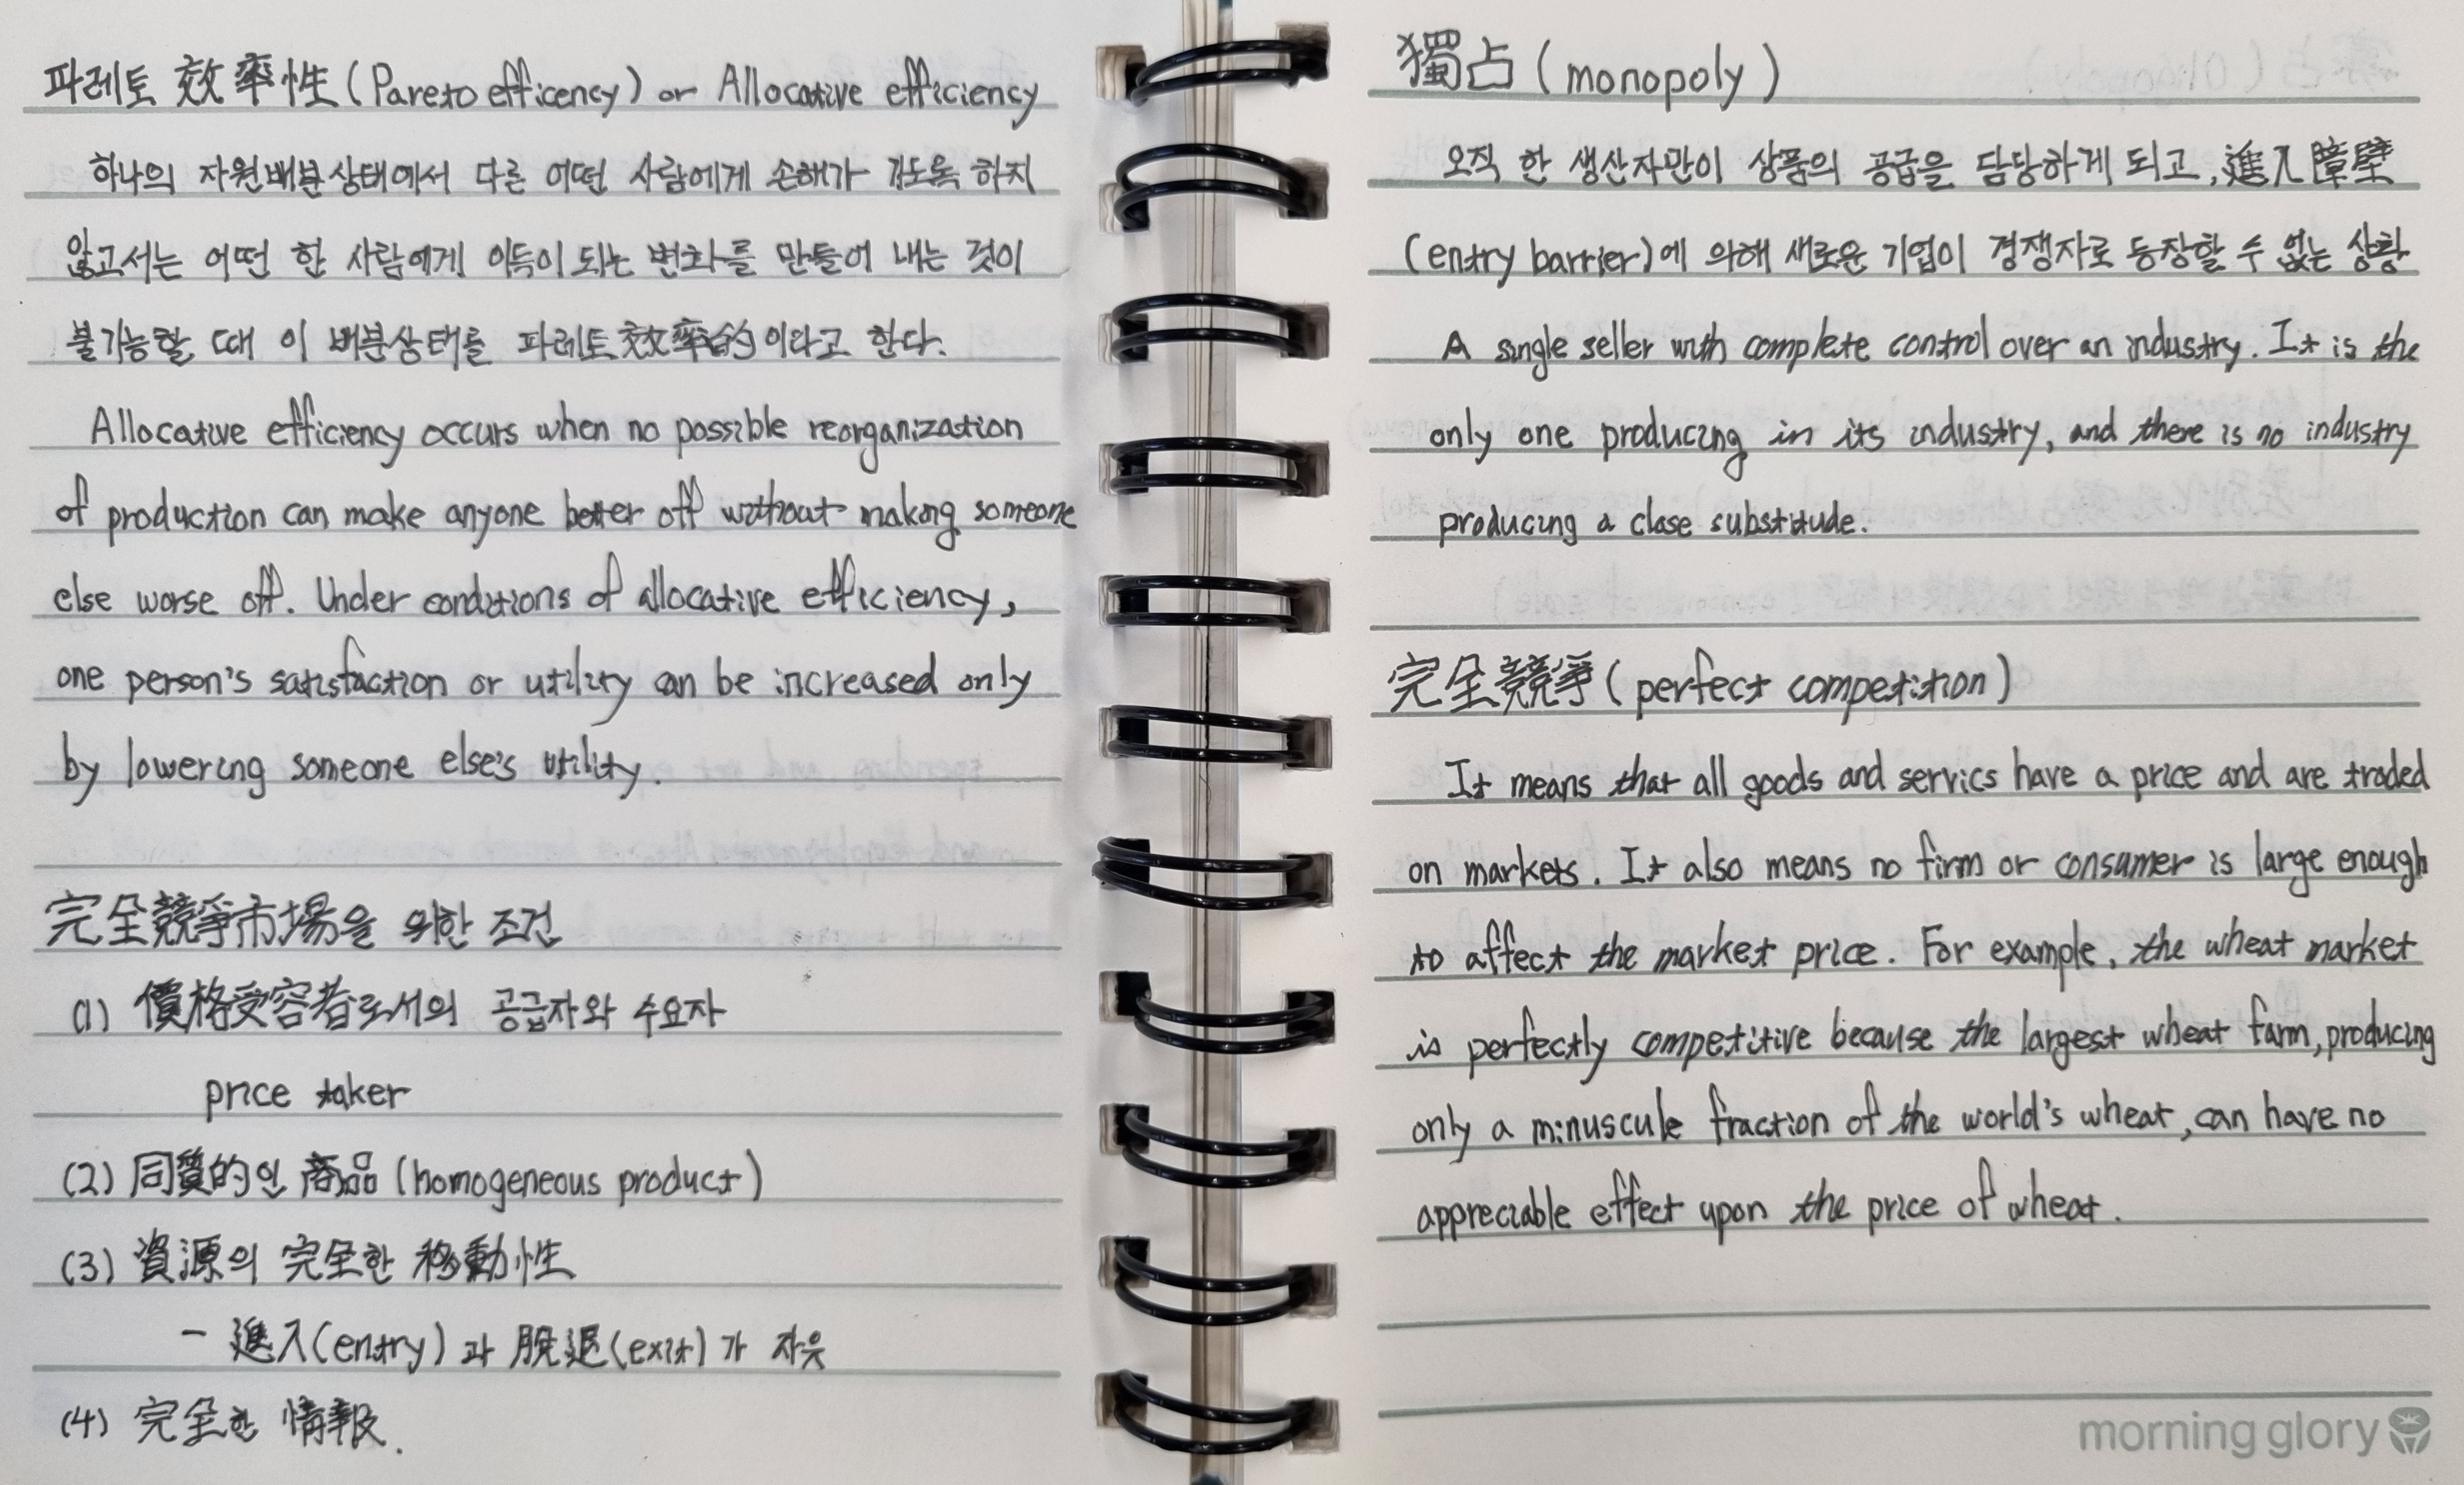 파레토 效率性 (Pareto efficency) or Allocative efficiency
하나의 자원배분상태에서 다른 어떤 사람에게 손해가 가도록 하지
않고서는 어떤 한 사람에게 이득이 되는 변화를 만들어 내는 것이
불가능할 때 이 배분상태를 파레토 效率的이라고 한다.
Allocative efficiency occurs when no possible reorganization
of production can make anyone better off without making someone
else worse off. Under conditions of allocative efficiency,
one person's satisfaction or utility can be increased only
by lowering someone else's utility.
完全競爭市場을 위한 조건
(1) 價格受容者로서의 공급자와 수요자
price taker
(2) 同質的인 商品 (homogeneous product)
(3) 資源의 完全한 移動性
- 進入(entry)과 脫退(exit)가 자유
(4) 完全한 情報.
獨占 (monopoly)
오직 한 생산자만이 상품의 공급을 담당하게 되고, 進入障壁
(entry barrier)에 의해 새로운 기업이 경쟁자로 등장할 수 없는 상황
A single seller with complete control over an industry. It is the
only one producing in its industry, and there is no industry
producing a close substitude.
完全競爭 (perfect competition)
It means that all goods and servics have a price and are traded
on markets. It also means no firm or consumer is large enough
to affect the market price. For example, the wheat market
is perfectly competitive because the largest wheat farm, producing
only a minuscule fraction of the world's wheat, can have no
appreciable effect upon the price of wheat.
morning glory